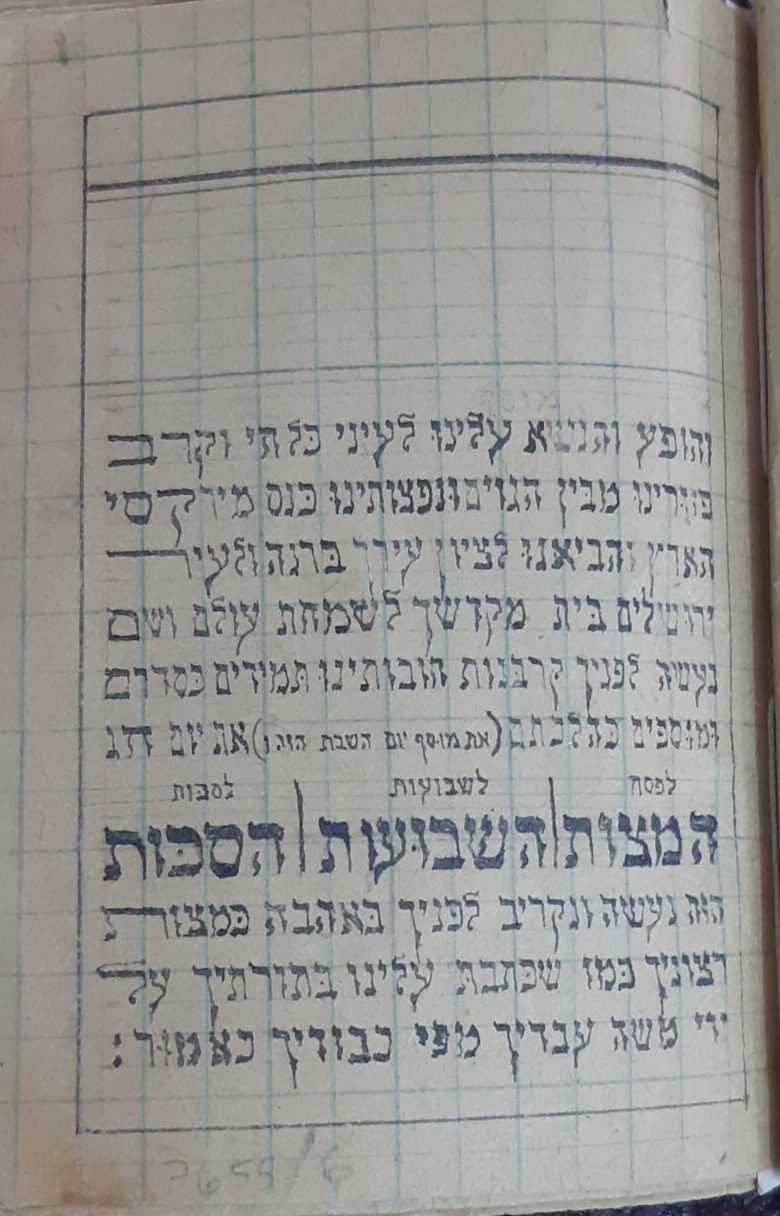 והופע והנשא עלינו לעיני כל חי וקרב
פזורינו מבין הגוים ונפצותינו כנס מירכתי
הארץ והביאנו לציון עירך ברנה ולעיר
ירושלים בית מקדשך לשמחת עולם ושם
נעשה לפניך קרבנות חובותינו תמידים כסדרם
ומוספים כהלכתם (את מוסף יום השבת הזה ו) את יום חג
לפסח לשבועות לסכות
המצות | השבועות | הסכות
הזה נעשה ונקריב לפניך באהבה כמצות
רצוניך כמו שכתבת עלינו בתורתיך על
ידי משה עבדיך מפי כבודיך כאמור :